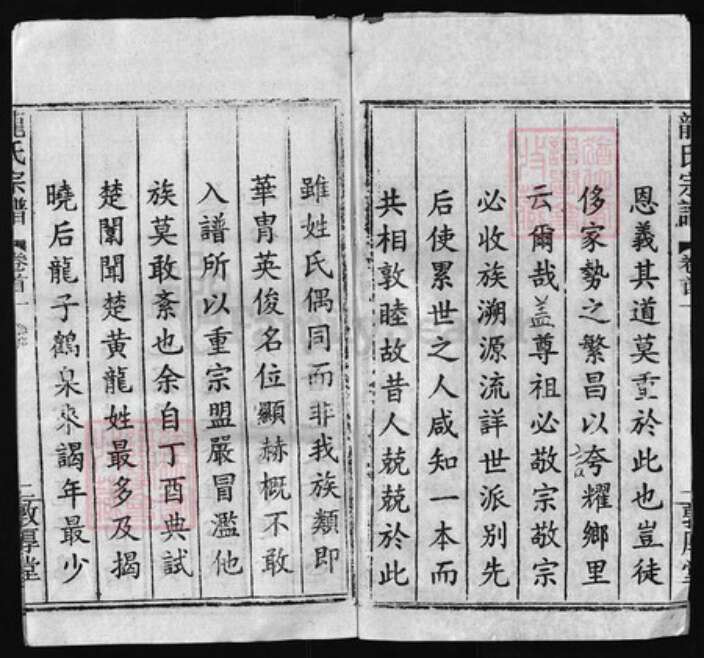 龍氏宗譜
卷首
恩義其道莫重於此也豈徒
侈家勢之繁昌以誇耀鄉里
云爾哉蓋尊祖必敬宗敬宗
必收族溯源流詳世派別先
后使累世之人咸知一本而
共相敦睦故昔人兢兢於此
雖姓氏偶同而非我族類即
華胄英俊名位顯赫概不敢
入譜所以重宗盟嚴冒濫他
族莫敢紊也余自丁酉典試
楚闈聞楚黃龍姓最多及揭
曉后龍子鶴臯來謁年最少
龍氏宗譜
卷首一
二敦厚堂